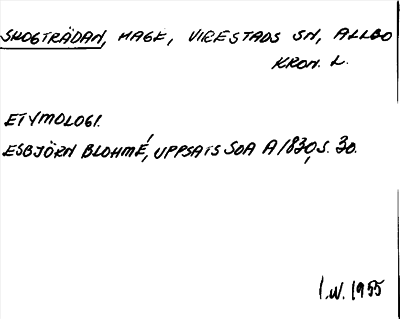 SKOGTRÄDAN, HAGE, VIRESTADS SN, ALLBO
KRON. L.
ETYMOLOGI.
ESBJÖRN BLOHMÉ, UPPSATS SOA A1830, S. 30.
I.W. 1955